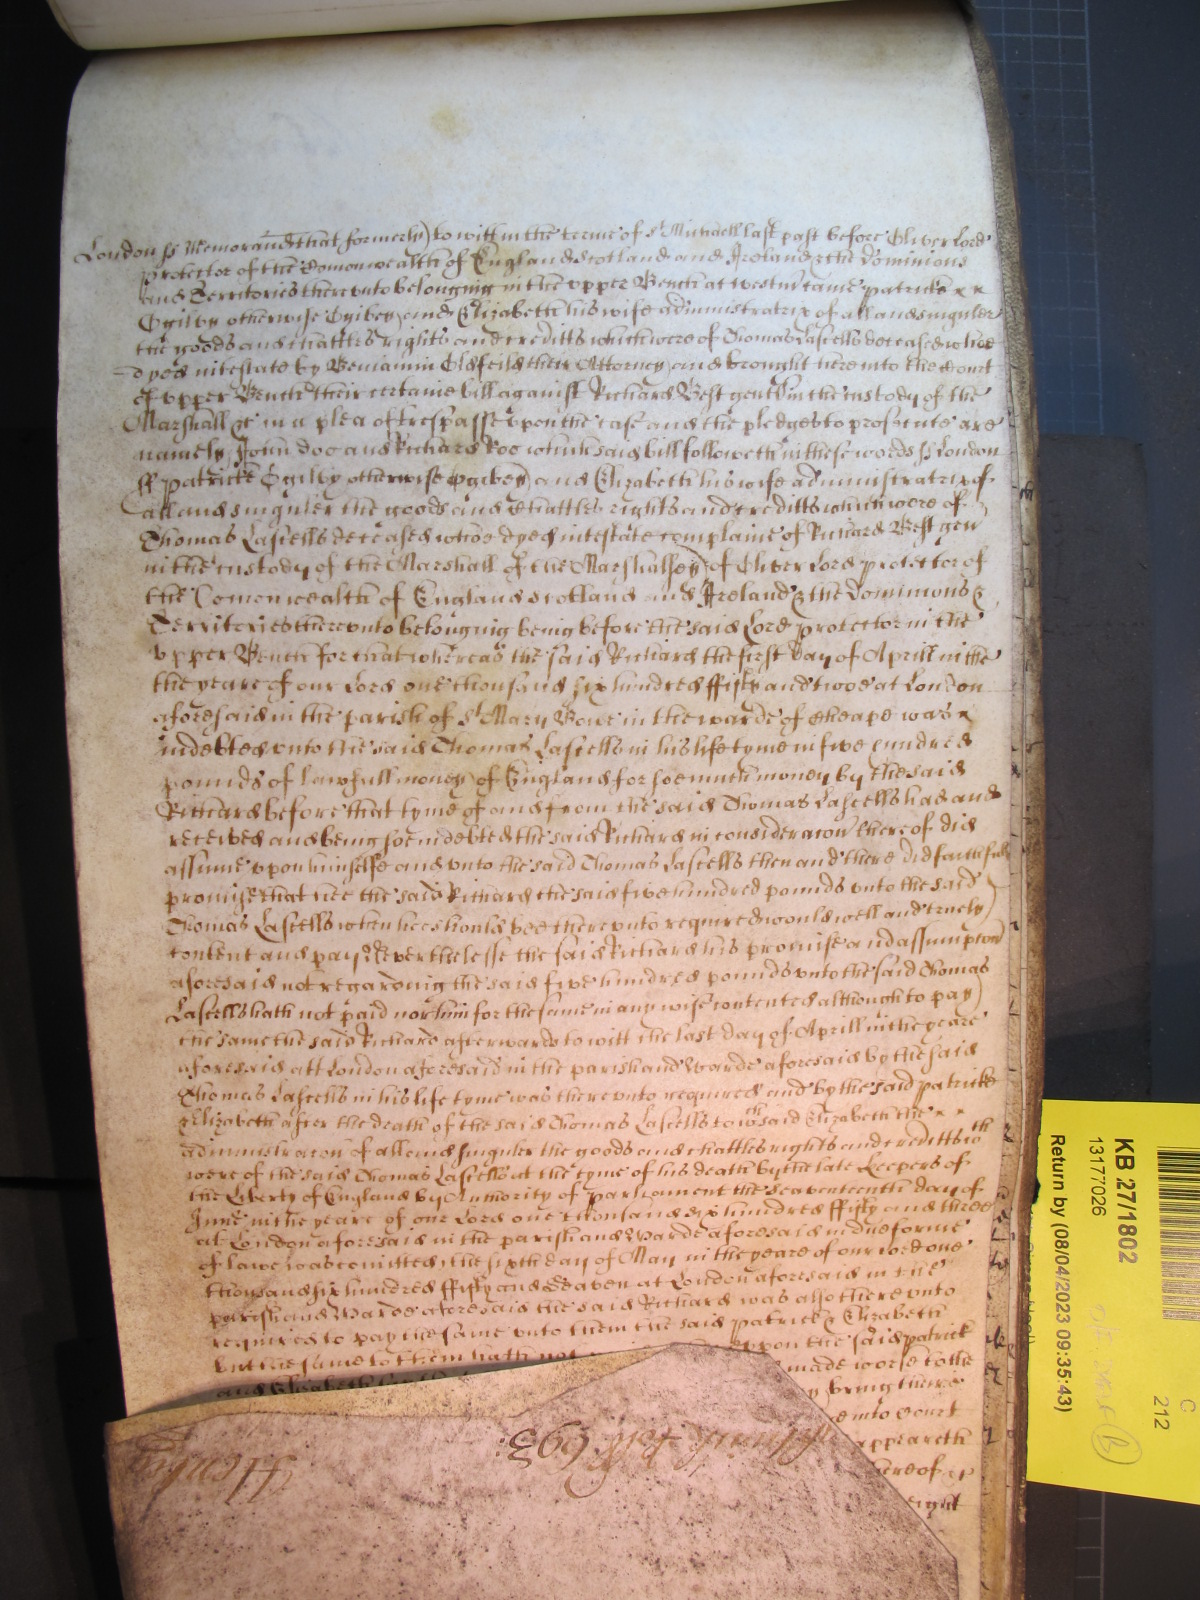 London ss Memorand that formerly to witt in the terme of St Michaell last past before Oliver Lord
Protector of the Comonwealth of England Scotland and Ireland & the Dominions
and Territories thereunto belonging in the upper Bench at Westm came Patricke x x
Ogilby otherwise Ogibey and Elizabeth his wife administratrix of all and singuler
the goods and chattles rights and creditts which were of Thomas Lascells deceased whoe
dyed intestate by Beniamin Oldfeild their Attorney and brought here into the Court
of upper Bench their certaine bill against Richard Best gentl in the custody of the
Marshall &c in a plea of trespasse upon the case and the pledges to prosecute are
namely John Doo and Richard Roo which said bill followeth in these words ss London
ss Patricke Ogilby otherwise Ogibey and Elizabeth his wife administratrix of
all and singuler the goods and chattles rights and creditts which were of
Thomas Lascells deceased whoe dyed intestate complaine of Richard Best gen
in the custody of the Marshall of the Marshalsey of Oliver Lord Protector of
the Comonwealth of England Scotland and Ireland & the Dominions &
Territories thereunto belonging being before the said Lord Protector in the
upper Bench for that whereas the said Richard the first day of Aprill in the
the yeare of our Lord one thousand six hundred fifty and twoe at London
aforesaid in the parish of St Mary Bowe in the warde of Cheape was x
indebted unto the said Thomas Lascells in his life tyme in five hundred
pounds of lawfull money of England for soe much money by the said
Richard before that tyme of and from the said Thomas Lascells had and
received and being soe indebted the said Richard in consideracon thereof did
assume upon himselfe and unto the said Thomas Lascells then and there did faithfully
promise that hee the said Richard the said five hundred pounds unto the said
Thomas Lascells when hee should bee thereunto required would well and truely
content and pay Neverthelesse the said Richard his promise and assumpcon
aforesaid not regarding the said five hundred pounds unto the said Thomas
Lascells hath not paid nor him for the same in any wise contented although to pay
the same the said Richard afterwards to witt the last day of Aprill in the yeare
aforesaid att London aforesaid in the parish and Warde aforesaid by the said
Thomas Lascells in his life tyme was thereunto required and by the said Patricke
& Elizabeth after the death of the said Thomas Lascells to wch said Elizabeth the x x
administracon of all and singuler the goods and chattles rights and creditts wch
were of the said Thomas Lascells at the tyme of his death by the late Keepers of
the Liberty of England by Authority of Parliament the seaventeenth day of
June in the yeare of our Lord one thousand six hundred fifty and three
at London aforesaid in the parish and Warde aforesaid in due forme
of lawe was comitted the sixth day of May in the yeare of our Lord one
thousand six hundred fifty and seaven at London aforesaid in the
parish and Warde aforesaid the said Richard was also thereunto
required to pay the same unto them the said Patrick & Elizabeth
but the same to them hath not uppon the said Patrick
and Elizabeth made worse to the
bring there
into Court
appeareth
hereof
eight
693
KB 27/1802
13177026
Return by (08/04/2023 09:35:43)
G
212